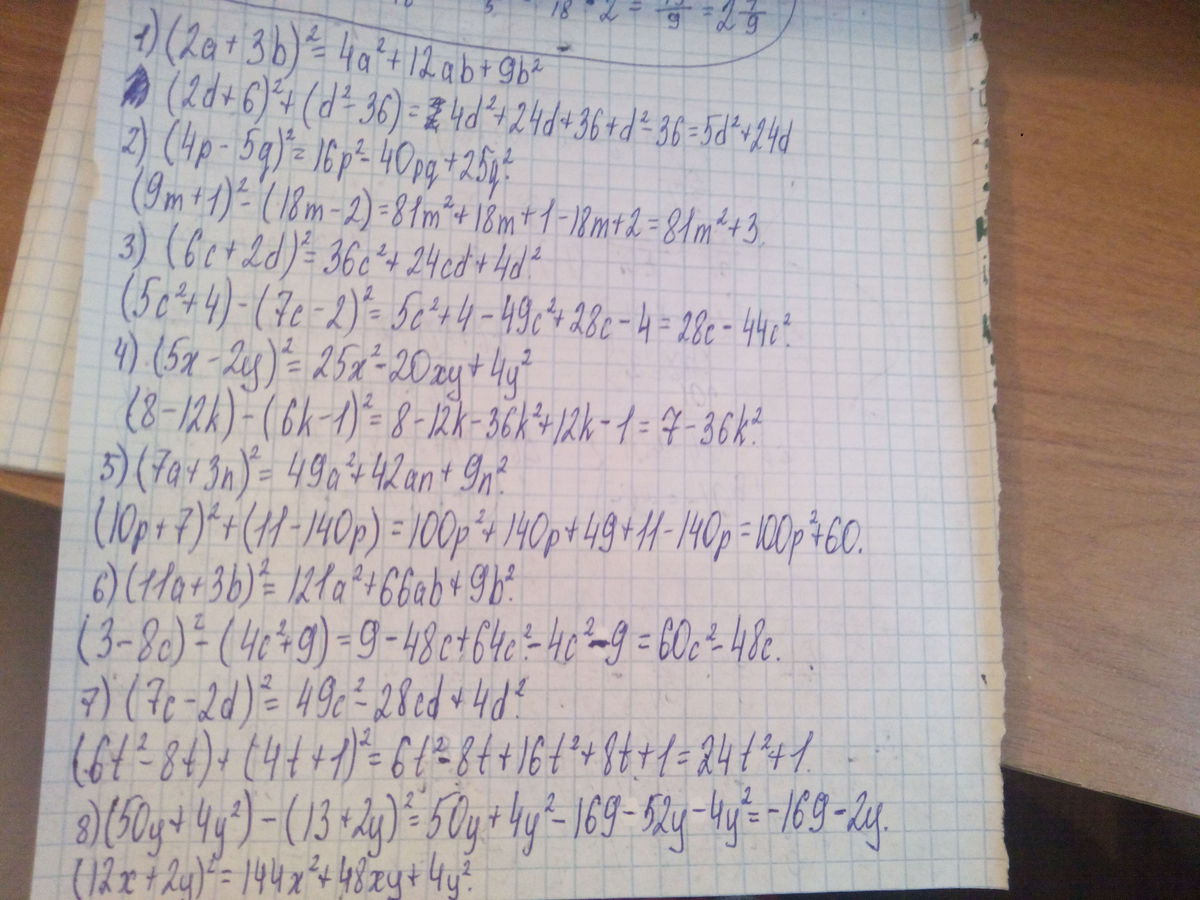 5 18 · 2 = 19/9 = 2 7/9
1) (2a + 3b)² = 4a² + 12ab + 9b²
(2d + 6)² + (d² - 36) = 4d² + 24d + 36 + d² - 36 = 5d² + 24d
2) (4p - 5q)² = 16p² - 40pq + 25q².
(9m + 1)² - (18m - 2) = 81m² + 18m + 1 - 18m + 2 = 81m² + 3.
3) (6c + 2d)² = 36c² + 24cd + 4d².
(5c² + 4) - (7c - 2)² = 5c² + 4 - 49c² + 28c - 4 = 28c - 44c².
4) (5x - 2y)² = 25x² - 20xy + 4y²
(8 - 12k) - (6k - 1)² = 8 - 12k - 36k² + 12k - 1 = 7 - 36k².
5) (7a + 3n)² = 49a² + 42an + 9n².
(10p + 7)² + (11 - 140p) = 100p² + 140p + 49 + 11 - 140p = 100p² + 60.
6) (11a + 3b)² = 121a² + 66ab + 9b².
(3 - 8c)² - (4c² + 9) = 9 - 48c + 64c² - 4c² - 9 = 60c² - 48c.
7) (7c - 2d)² = 49c² - 28cd + 4d².
(6t² - 8t) + (4t + 1)² = 6t² - 8t + 16t² + 8t + 1 = 24t² + 1.
8) (50y + 4y²) - (13 + 2y)² = 50y + 4y² - 169 - 52y - 4y² = -169 - 2y.
(12x + 2y)² = 144x² + 48xy + 4y².